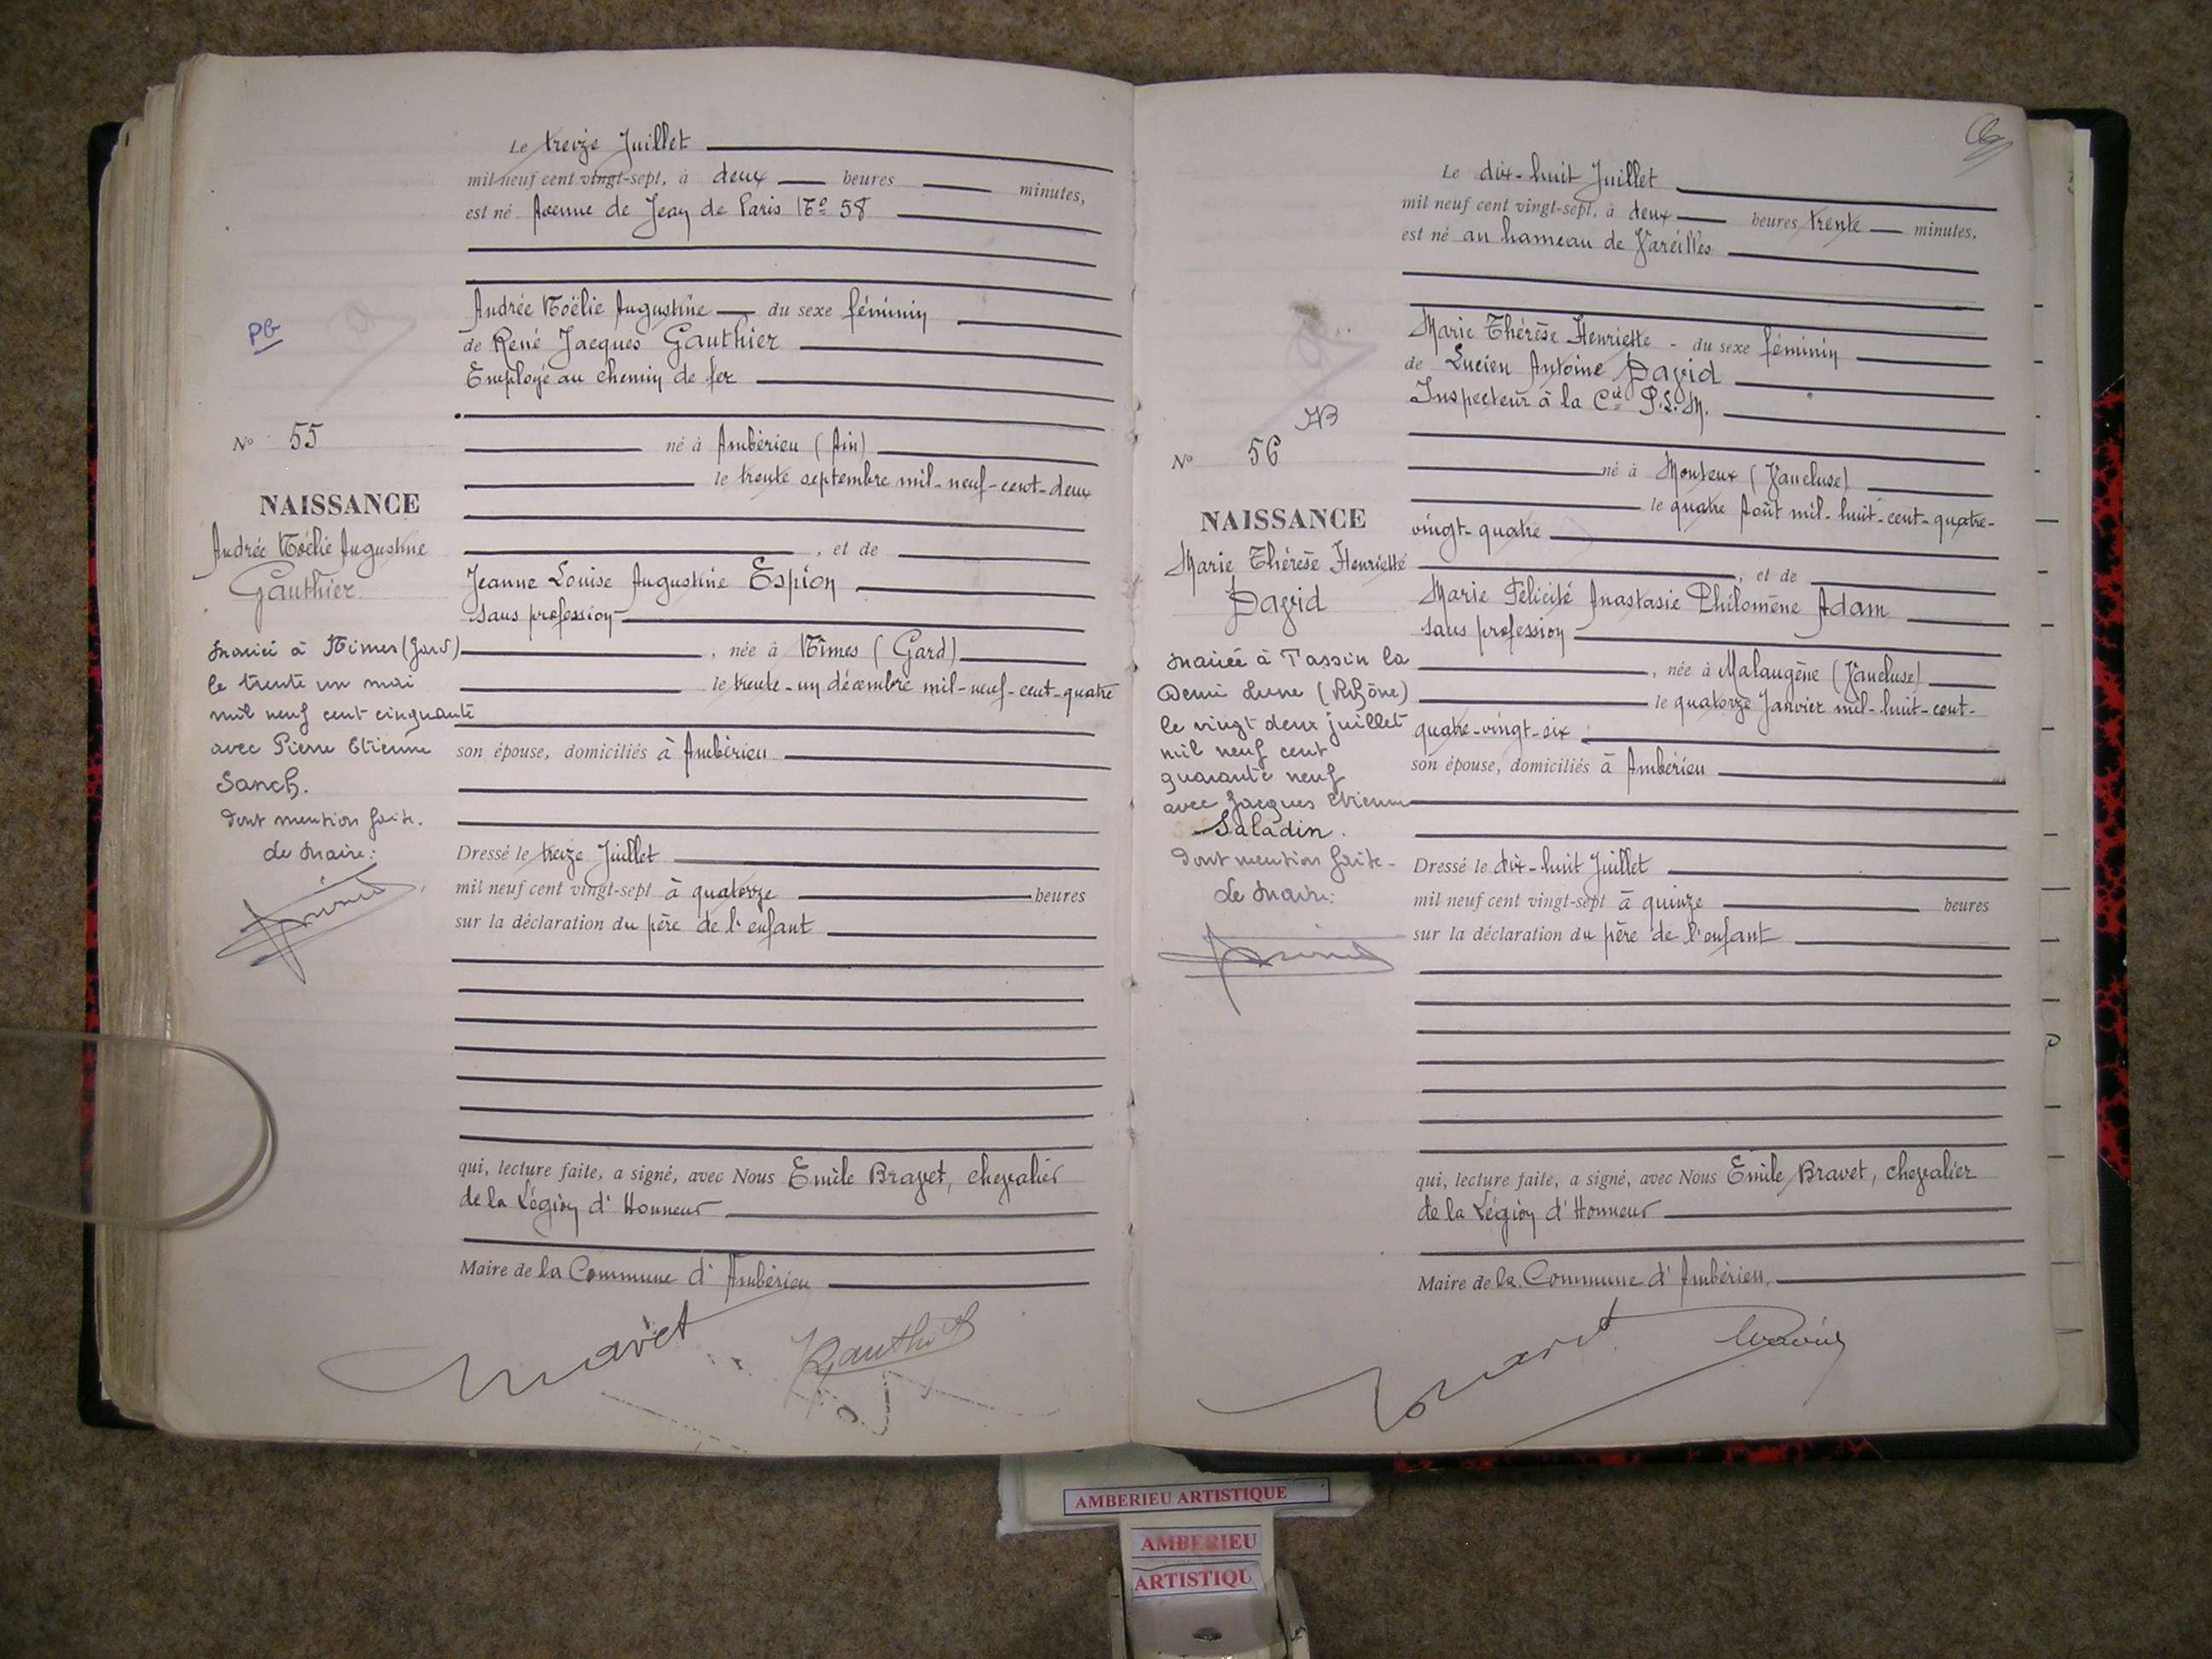 Le treize Juillet
mil neuf cent vingt-sept, à deux heures minutes,
est né Avenue de Jean de Paris No 58
Andrée Noëlie Augustine du sexe féminin
de René Jacques Gauthier
Employé au chemin de fer
PG
No 55
né à Ambérieu (Ain)
le trente septembre mil-neuf-cent-deux
NAISSANCE
Andrée Noëlie Augustine
Gauthier
, et de
Jeanne Louise Augustine Espion
sans profession
, née à Nîmes (Gard)
le trente-un décembre mil-neuf-cent-quatre
mariée à Nimes (Gard)
le trente un mai
mil neuf cent cinquante
avec Pierre Etienne
Sanch.
dont mention faite.
Le Maire:
son épouse, domiciliés à Ambérieu
Dressé le treize Juillet
mil neuf cent vingt-sept à quatorze heures
sur la déclaration du père de l'enfant
qui, lecture faite, a signé, avec Nous Emile Bravet, chevalier
de la Légion d'Honneur
Maire de la Commune d'Ambérieu
Bravet
Gauthier
Le dix-huit Juillet
mil neuf cent vingt-sept, à deux heures trente minutes,
est né au hameau de Vareilles
Marie Thérèse Henriette - du sexe féminin
de Lucien Antoine David
Inspecteur à la Cie P.L.M.
No 56
né à Monteux (Vaucluse)
le quatre Août mil-huit-cent-quatre-
vingt-quatre
NAISSANCE
Marie Thérèse Henriette
David
, et de
Marie Félicité Anastasie Philomène Adam
sans profession
, née à Malaugène (Vaucluse)
le quatorze Janvier mil-huit-cent-
quatre-vingt-six
mariée à Tassin la
Demi Lune (Rhône)
le vingt deux juillet
mil neuf cent
quarante neuf
avec Jacques Etienne
Saladin.
dont mention faite-
Le Maire:
son épouse, domiciliés à Ambérieu
Dressé le dix-huit Juillet
mil neuf cent vingt-sept à quinze heures
sur la déclaration du père de l'enfant
qui, lecture faite, a signé, avec Nous Emile Bravet, chevalier
de la Légion d'Honneur
Maire de la Commune d'Ambérieu,
Bravet
AMBERIEU ARTISTIQUE
AMBERIEU
ARTISTIQU